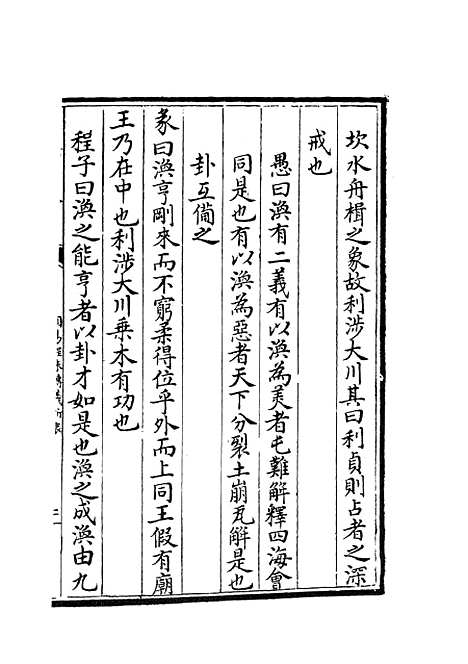 坎水舟楫之象故利涉大川其曰利貞則占者之深
戒也
愚曰渙有二義有以渙為美者屯難解釋四海會
同是也有以渙為惡者天下分裂土崩瓦解是也
卦互備之
彖曰渙亨剛來而不窮柔得位乎外而上同王假有廟
王乃在中也利涉大川乘木有功也
程子曰渙之能亨者以卦才如是也渙之成渙由九